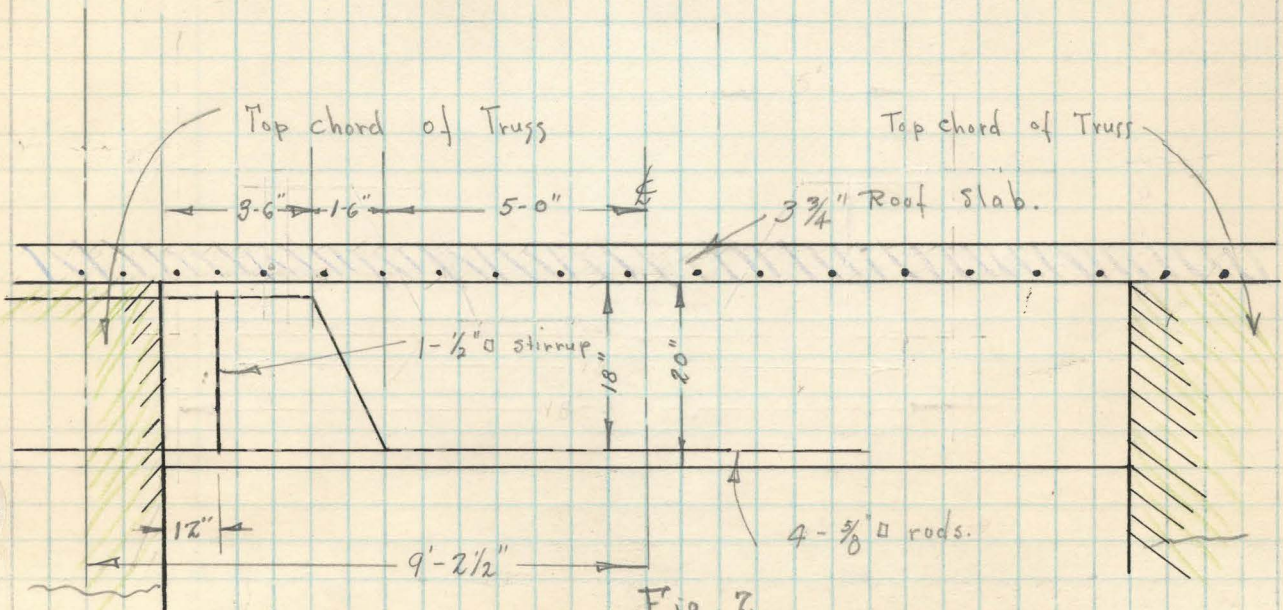 Top chord of Truss
Top chord of Truss
3-6"
1-6"
5-0"
℄
3 3/4" Roof Slab.
1-1/2"□ stirrup
18"
20"
12"
9'-2 1/2"
4-5/8"□ rods.